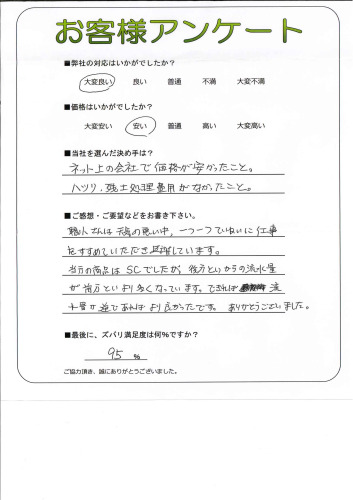 お客様アンケート
■弊社の対応はいかがでしたか?
大変良い 良い 普通 不満 大変不満
■価格はいかがでしたか?
大変安い 安い 普通 高い 大変高い
■当社を選んだ決め手は?
ネット上の会社で価格が安かったこと。
ハツリ、残土処理費用がなかったこと。
■ご感想・ご要望などをお書き下さい。
職人さんは天候の悪い中、一つ一つていねいに仕事
をすすめていただき感謝しています。
当方の商品はSCでしたが、後方といからの流水量
が前方といより多くなっています。できれば 流
水管が逆であればより良かったです。ありがとうございました。
■最後に、ズバリ満足度は何%ですか?
95 %
ご協力頂き、誠にありがとうございました。